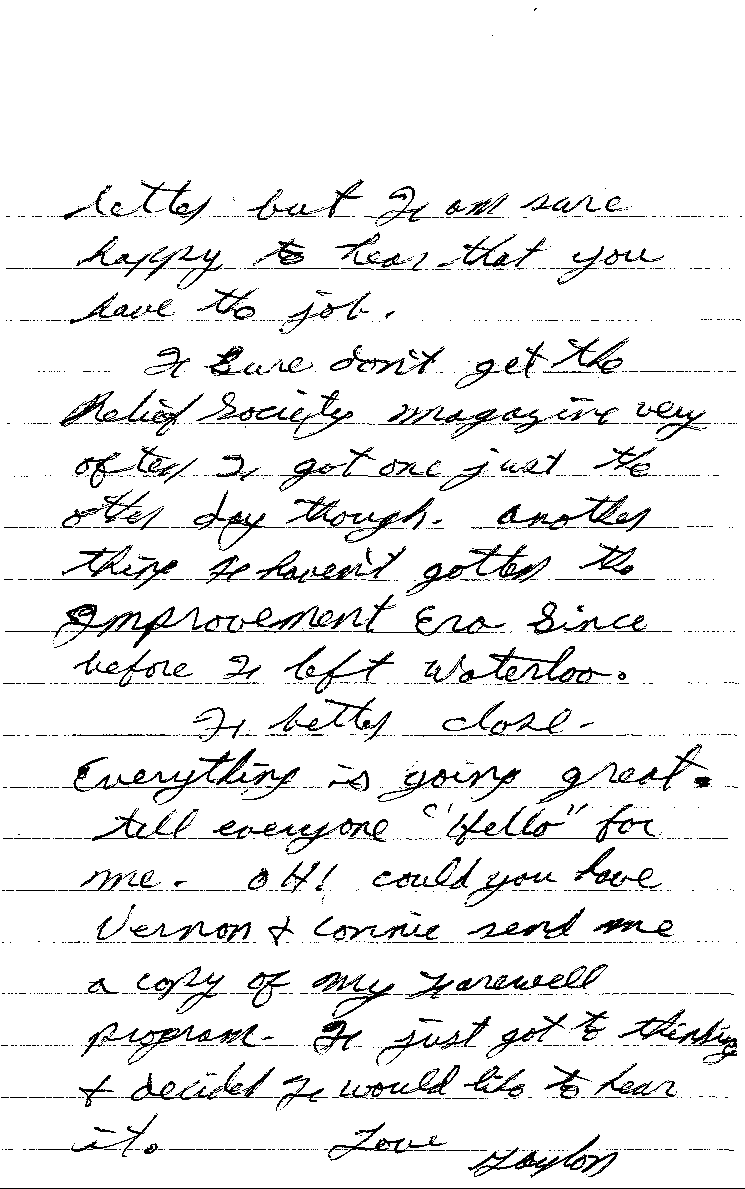 letter but I am sure
happy to hear that you
have the job.
I sure don't get the
Relief Society magazine very
often I got one just the
other day though. Another
thing I haven't gotten the
Improvement Era Since
before I left Waterloo.
I better close.
Everything is going great.
Tell everyone "Hello" for
me. OH! could you have
Vernon & Connie send me
a copy of my Farewell
program. I just got to thinking
& decided I would like to hear
it. Love